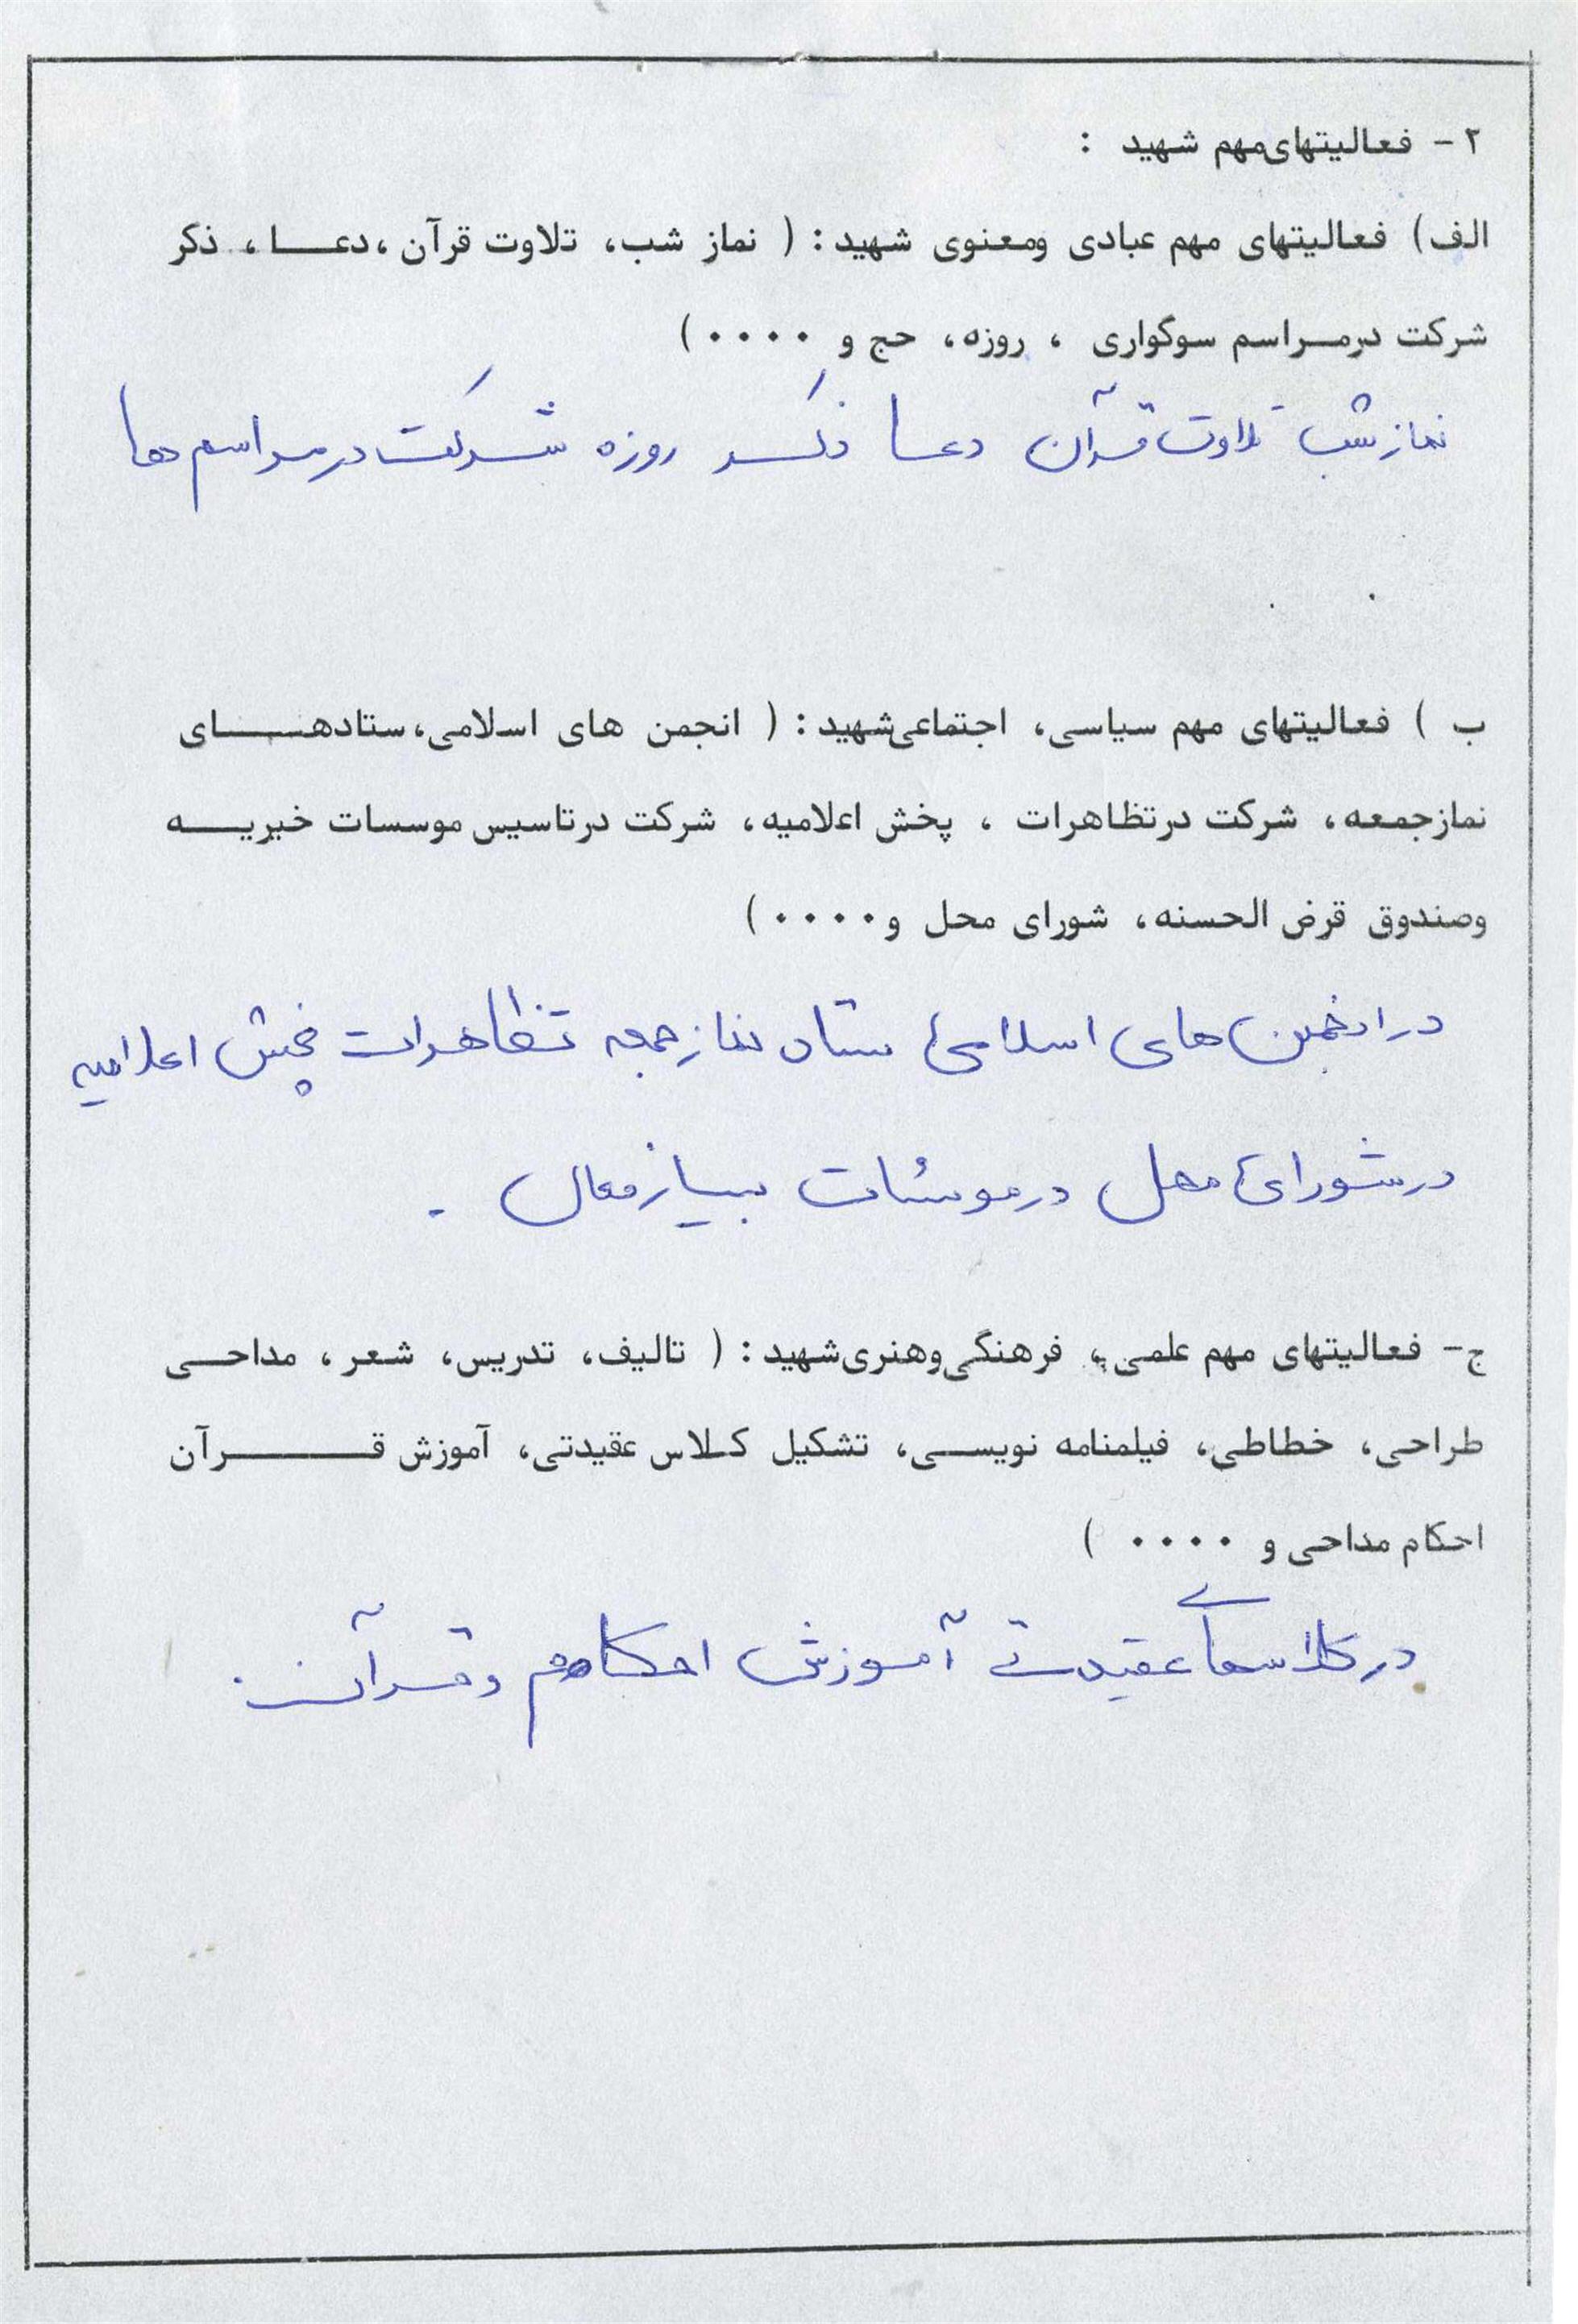 ۲ - فعالیتهای مهم شهید :
الف) فعالیتهای مهم عبادی ومعنوی شهید : ( نماز شب، تلاوت قرآن ،دعا ، ذکر
شرکت درمراسم سوگواری ، روزه، حج و ۰۰۰۰ )
نماز شب تلاوت قرآن دعا ذکر روزه شرکت در مراسم ها
ب ) فعالیتهای مهم سیاسی، اجتماعی شهید : ( انجمن های اسلامی، ستادهای
نمازجمعه، شرکت درتظاهرات ، پخش اعلامیه، شرکت درتاسیس موسسات خیریه
وصندوق قرض الحسنه، شورای محل و ۰۰۰۰ )
در انجمن های اسلامی ستاد نماز جمعه تظاهرات پخش اعلامیه
در شورای محل در موسئات بسیار فعال .
ج- فعالیتهای مهم علمی، فرهنگی وهنری شهید : ( تالیف، تدریس، شعر ، مداحی
طراحی، خطاطی، فیلمنامه نویسی، تشکیل کلاس عقیدتی، آموزش قرآن
احکام مداحی و ۰۰۰۰ )
در کلاسهای عقیدتی آموزش احکام و قرآن .